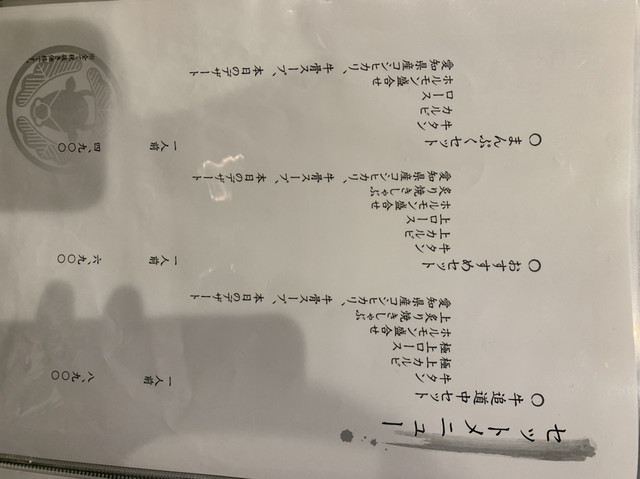 セットメニュー
〇 牛追道中セット
牛タン
極上カルビ
極上ロース
ホルモン盛合せ
上炙り焼きしゃぶ
愛知県産コシヒカリ、牛骨スープ、本日のデザート
一人前 八、九〇〇
〇 おすすめセット
牛タン
上カルビ
上ロース
ホルモン盛合せ
炙り焼きしゃぶ
愛知県産コシヒカリ、牛骨スープ、本日のデザート
一人前 六、九〇〇
〇 まんぷくセット
牛タン
カルビ
ロース
ホルモン盛合せ
愛知県産コシヒカリ、牛骨スープ、本日のデザート
一人前 四、九〇〇